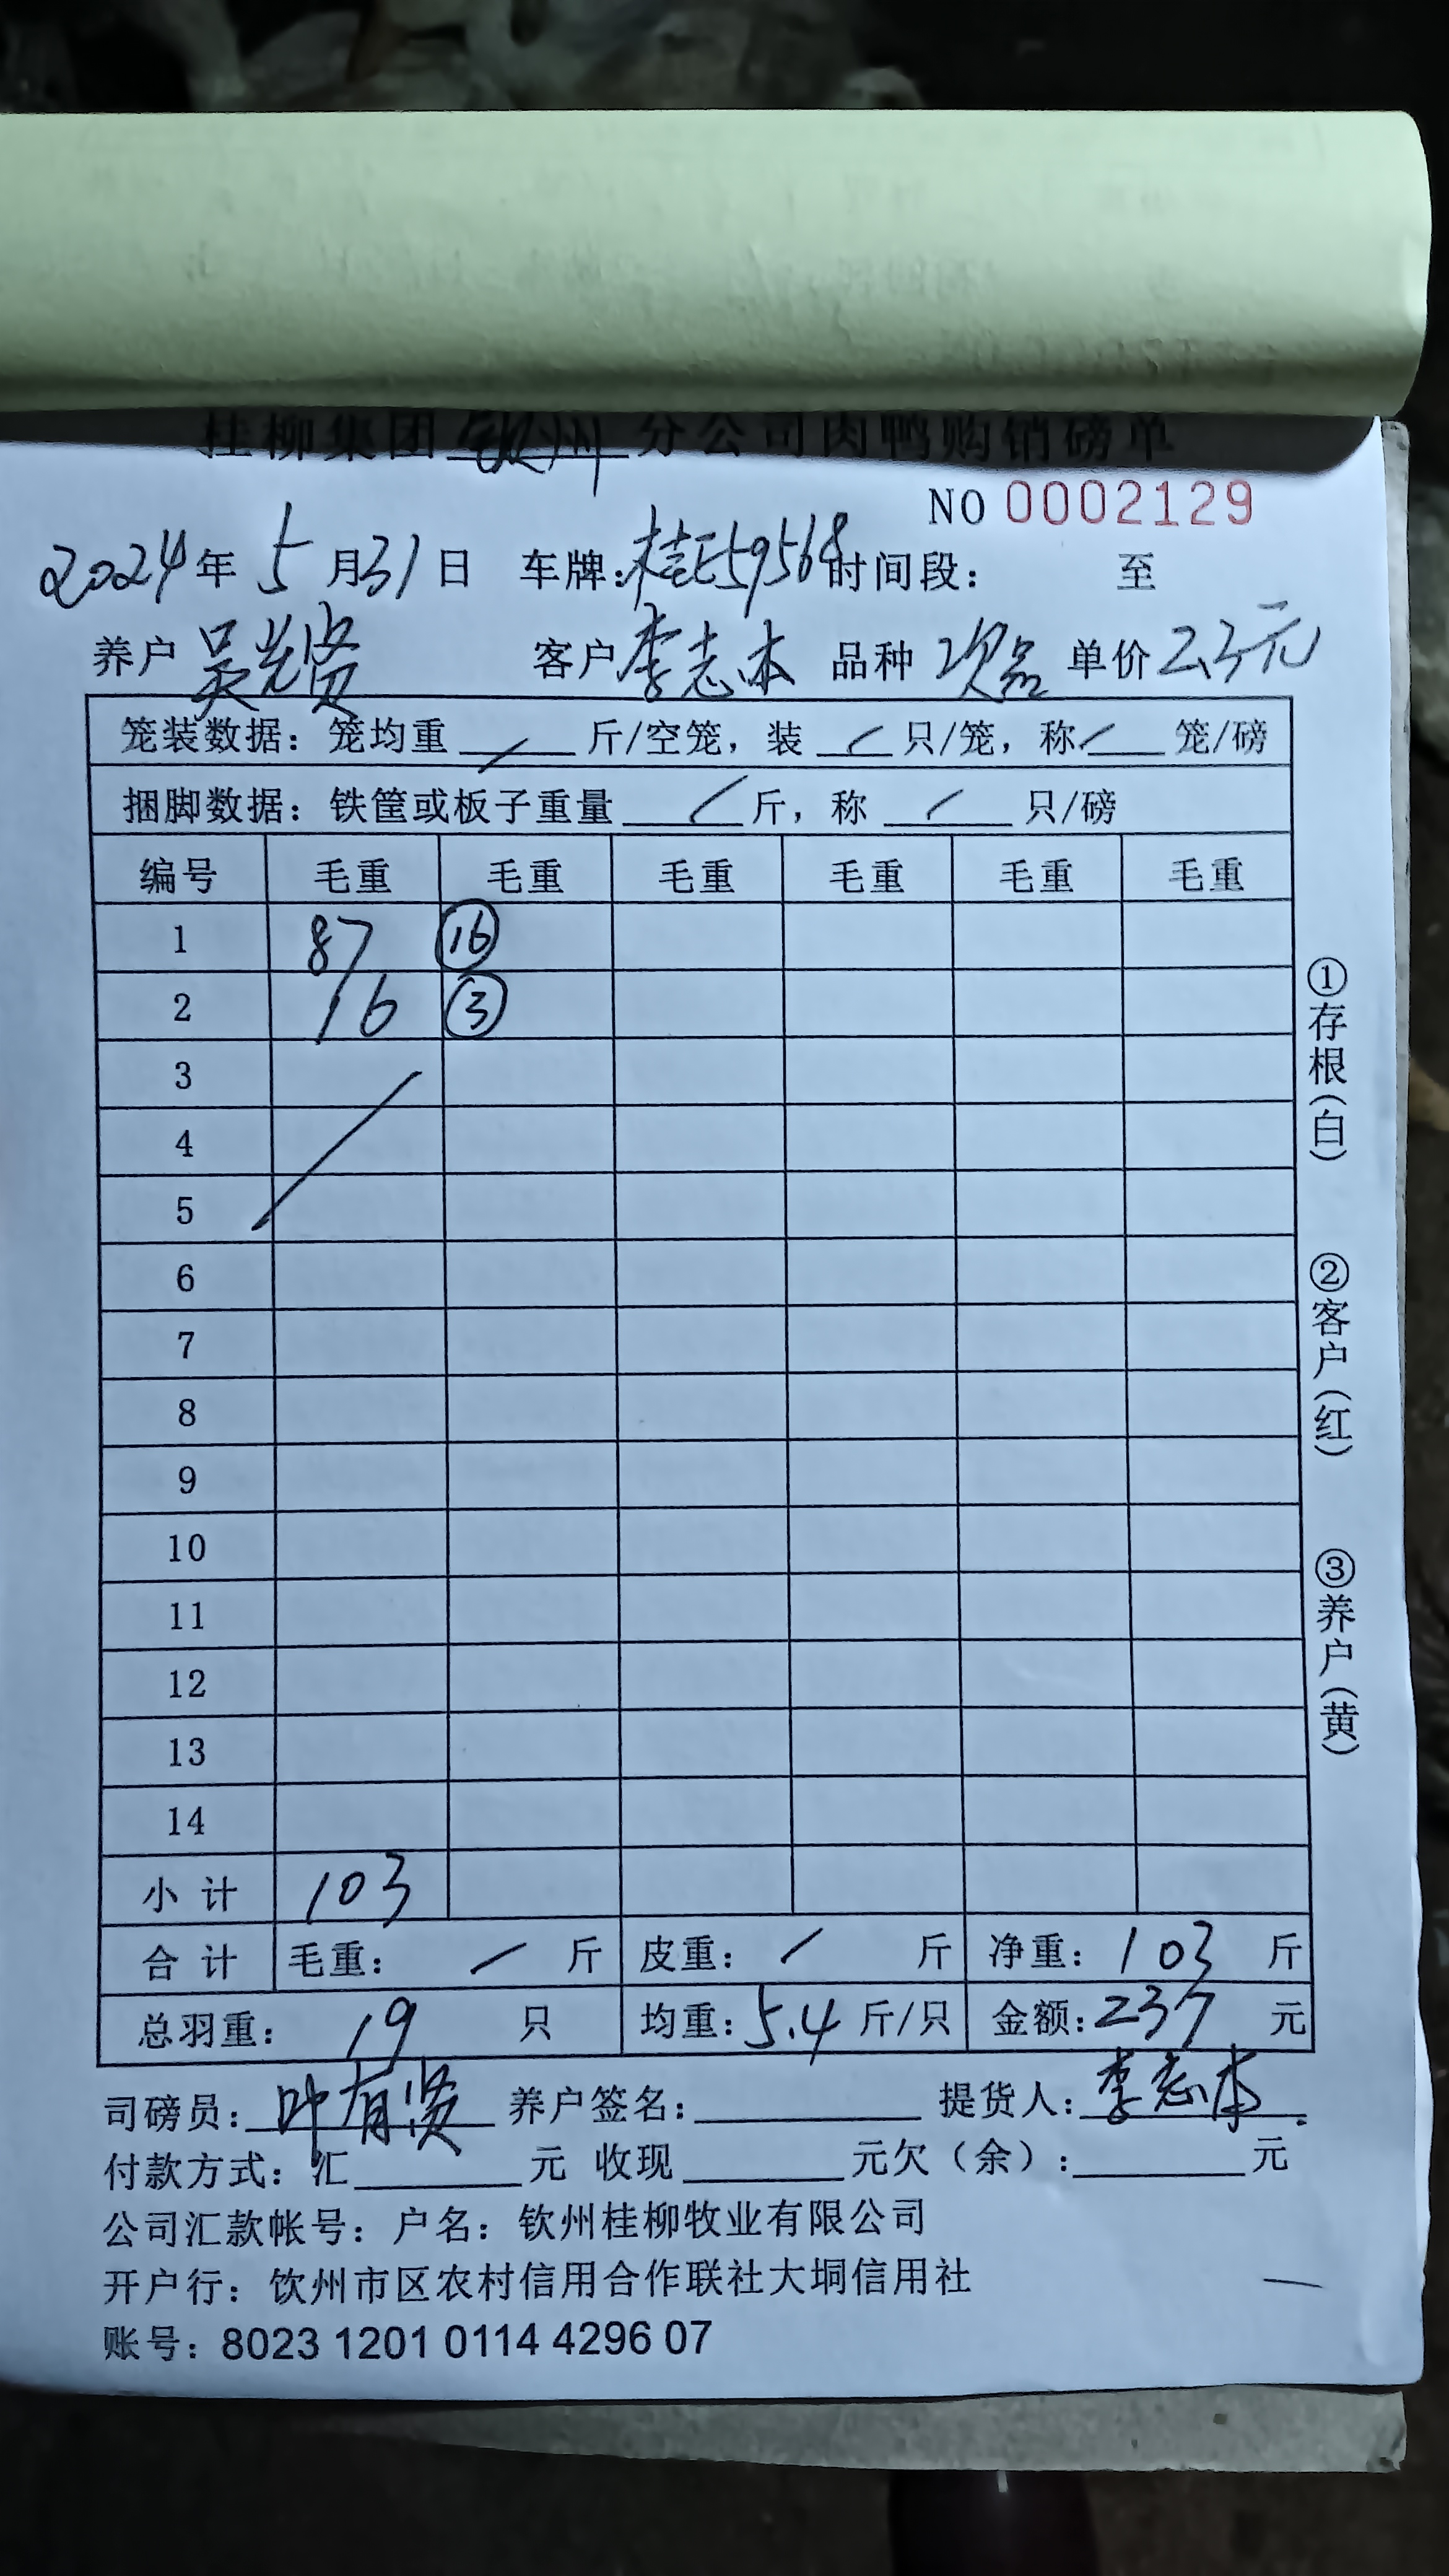 桂柳集团钦州分公司肉鸭购销磅单
NO 0002129
2024年5月31日 车牌:桂E59568时间段: 至
养户 吴光贤 客户 李志本 品种 次品 单价 2.3元
笼装数据: 笼均重 / 斤/空笼, 装 / 只/笼, 称 / 笼/磅
捆脚数据: 铁筐或板子重量 / 斤, 称 / 只/磅
编号 毛重 毛重 毛重 毛重 毛重 毛重
1 87 ⑯
2 16 ③
3
4
5
6
7
8
9
10
11
12
13
14
小计 103
合计 毛重: / 斤 皮重: / 斤 净重: 103 斤
总羽重: 19 只 均重: 5.4 斤/只 金额: 237 元
司磅员: 叶有贤 养户签名: 提货人: 李志本
付款方式: 汇 元 收现 元欠(余): 元
公司汇款帐号: 户名: 钦州桂柳牧业有限公司
开户行: 钦州市区农村信用合作联社大垌信用社
账号: 8023 1201 0114 4296 07
①存根(白)
②客户(红)
③养户(黄)